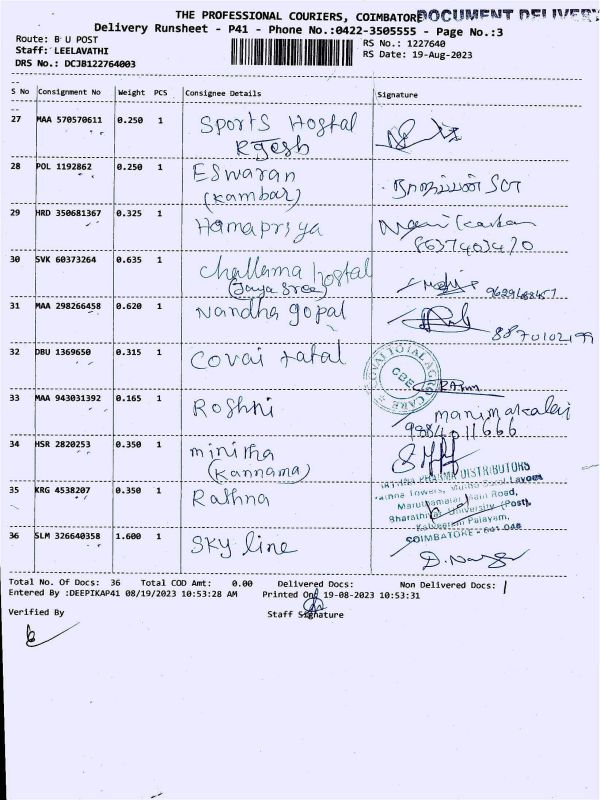 THE PROFESSIONAL COURIERS, COIMBATORE
DOCUMENT DELIVERY
Delivery Runsheet - P41 - Phone No.:0422-3505555 - Page No.:3
Route: B U POST
RS No.: 1227640
Staff: LEELAVATHI
RS Date: 19-Aug-2023
DRS No.: DCJB122764003
S No Consignment No Weight PCS Consignee Details Signature
27 MAA 570570611 0.250 1 Sports Hostal
Rgesh
28 POL 1192862 0.250 1 Eswaran
(Kambar)
29 HRD 350681367 0.325 1 Hamapriya
8637403420
30 SVK 60373264 0.635 1 Challama hostal
(Jaya Sree)
31 MAA 298266458 0.620 1 Nandha gopal
8870102199
32 DBU 1369650 0.315 1 Covai tatal
COVAI TOTAL AGRO CARE
CBE
33 MAA 943031392 0.165 1 Roshni
Manimakalai
9884011666
34 HSR 2820253 0.350 1 minitha
(Kannama)
35 KRG 4538207 0.350 1 Rathna
PHARMA DISTRIBUTORS
Towers,
Layout
Maruthamalai Main Road,
Bharathiar University (Post),
Kalveeram Palayam,
COIMBATORE - 641 046
36 SLM 326640358 1.600 1 Sky line
Total No. Of Docs: 36 Total COD Amt: 0.00 Delivered Docs: Non Delivered Docs:
Entered By :DEEPIKAP41 08/19/2023 10:53:28 AM Printed On: 19-08-2023 10:53:31
Verified By
Staff Signature